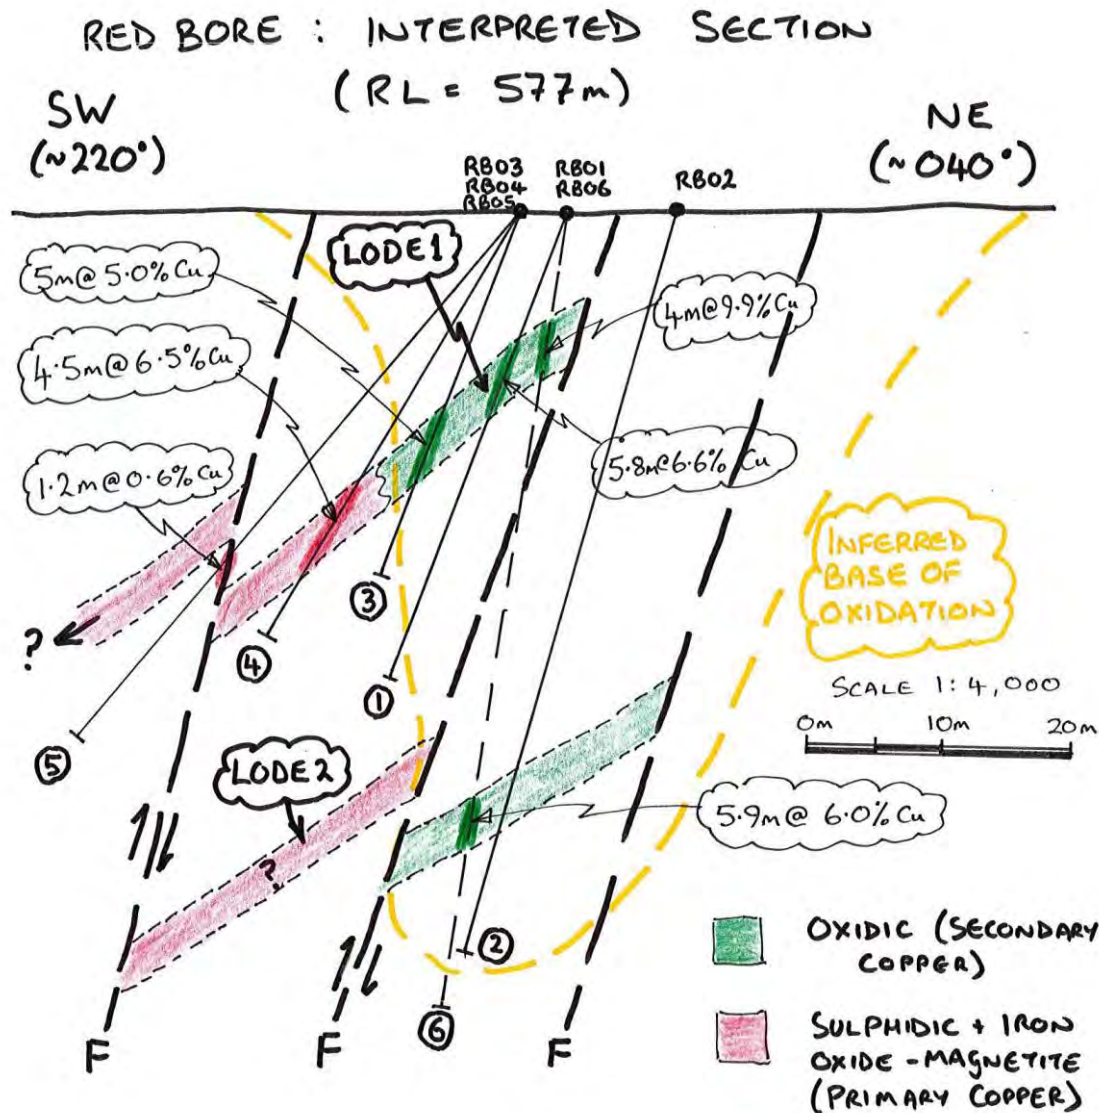 RED BORE : INTERPRETED SECTION
(RL = 577m)
SW
(~220°)
NE
(~040°)
RB03
RB04
RB05
RB01
RB06
RB02
LODE1
5m@5.0%Cu
4.5m@6.5%Cu
1.2m@0.6%Cu
4m@9.9%Cu
5.8m@6.6% Cu
INFERRED
BASE OF
OXIDATION
SCALE 1:4,000
0m 10m 20m
?
3
4
1
5
LODE2
?
5.9m@ 6.0%Cu
2
6
F
F
F
OXIDIC (SECONDARY
COPPER)
SULPHIDIC + IRON
OXIDE-MAGNETITE
(PRIMARY COPPER)